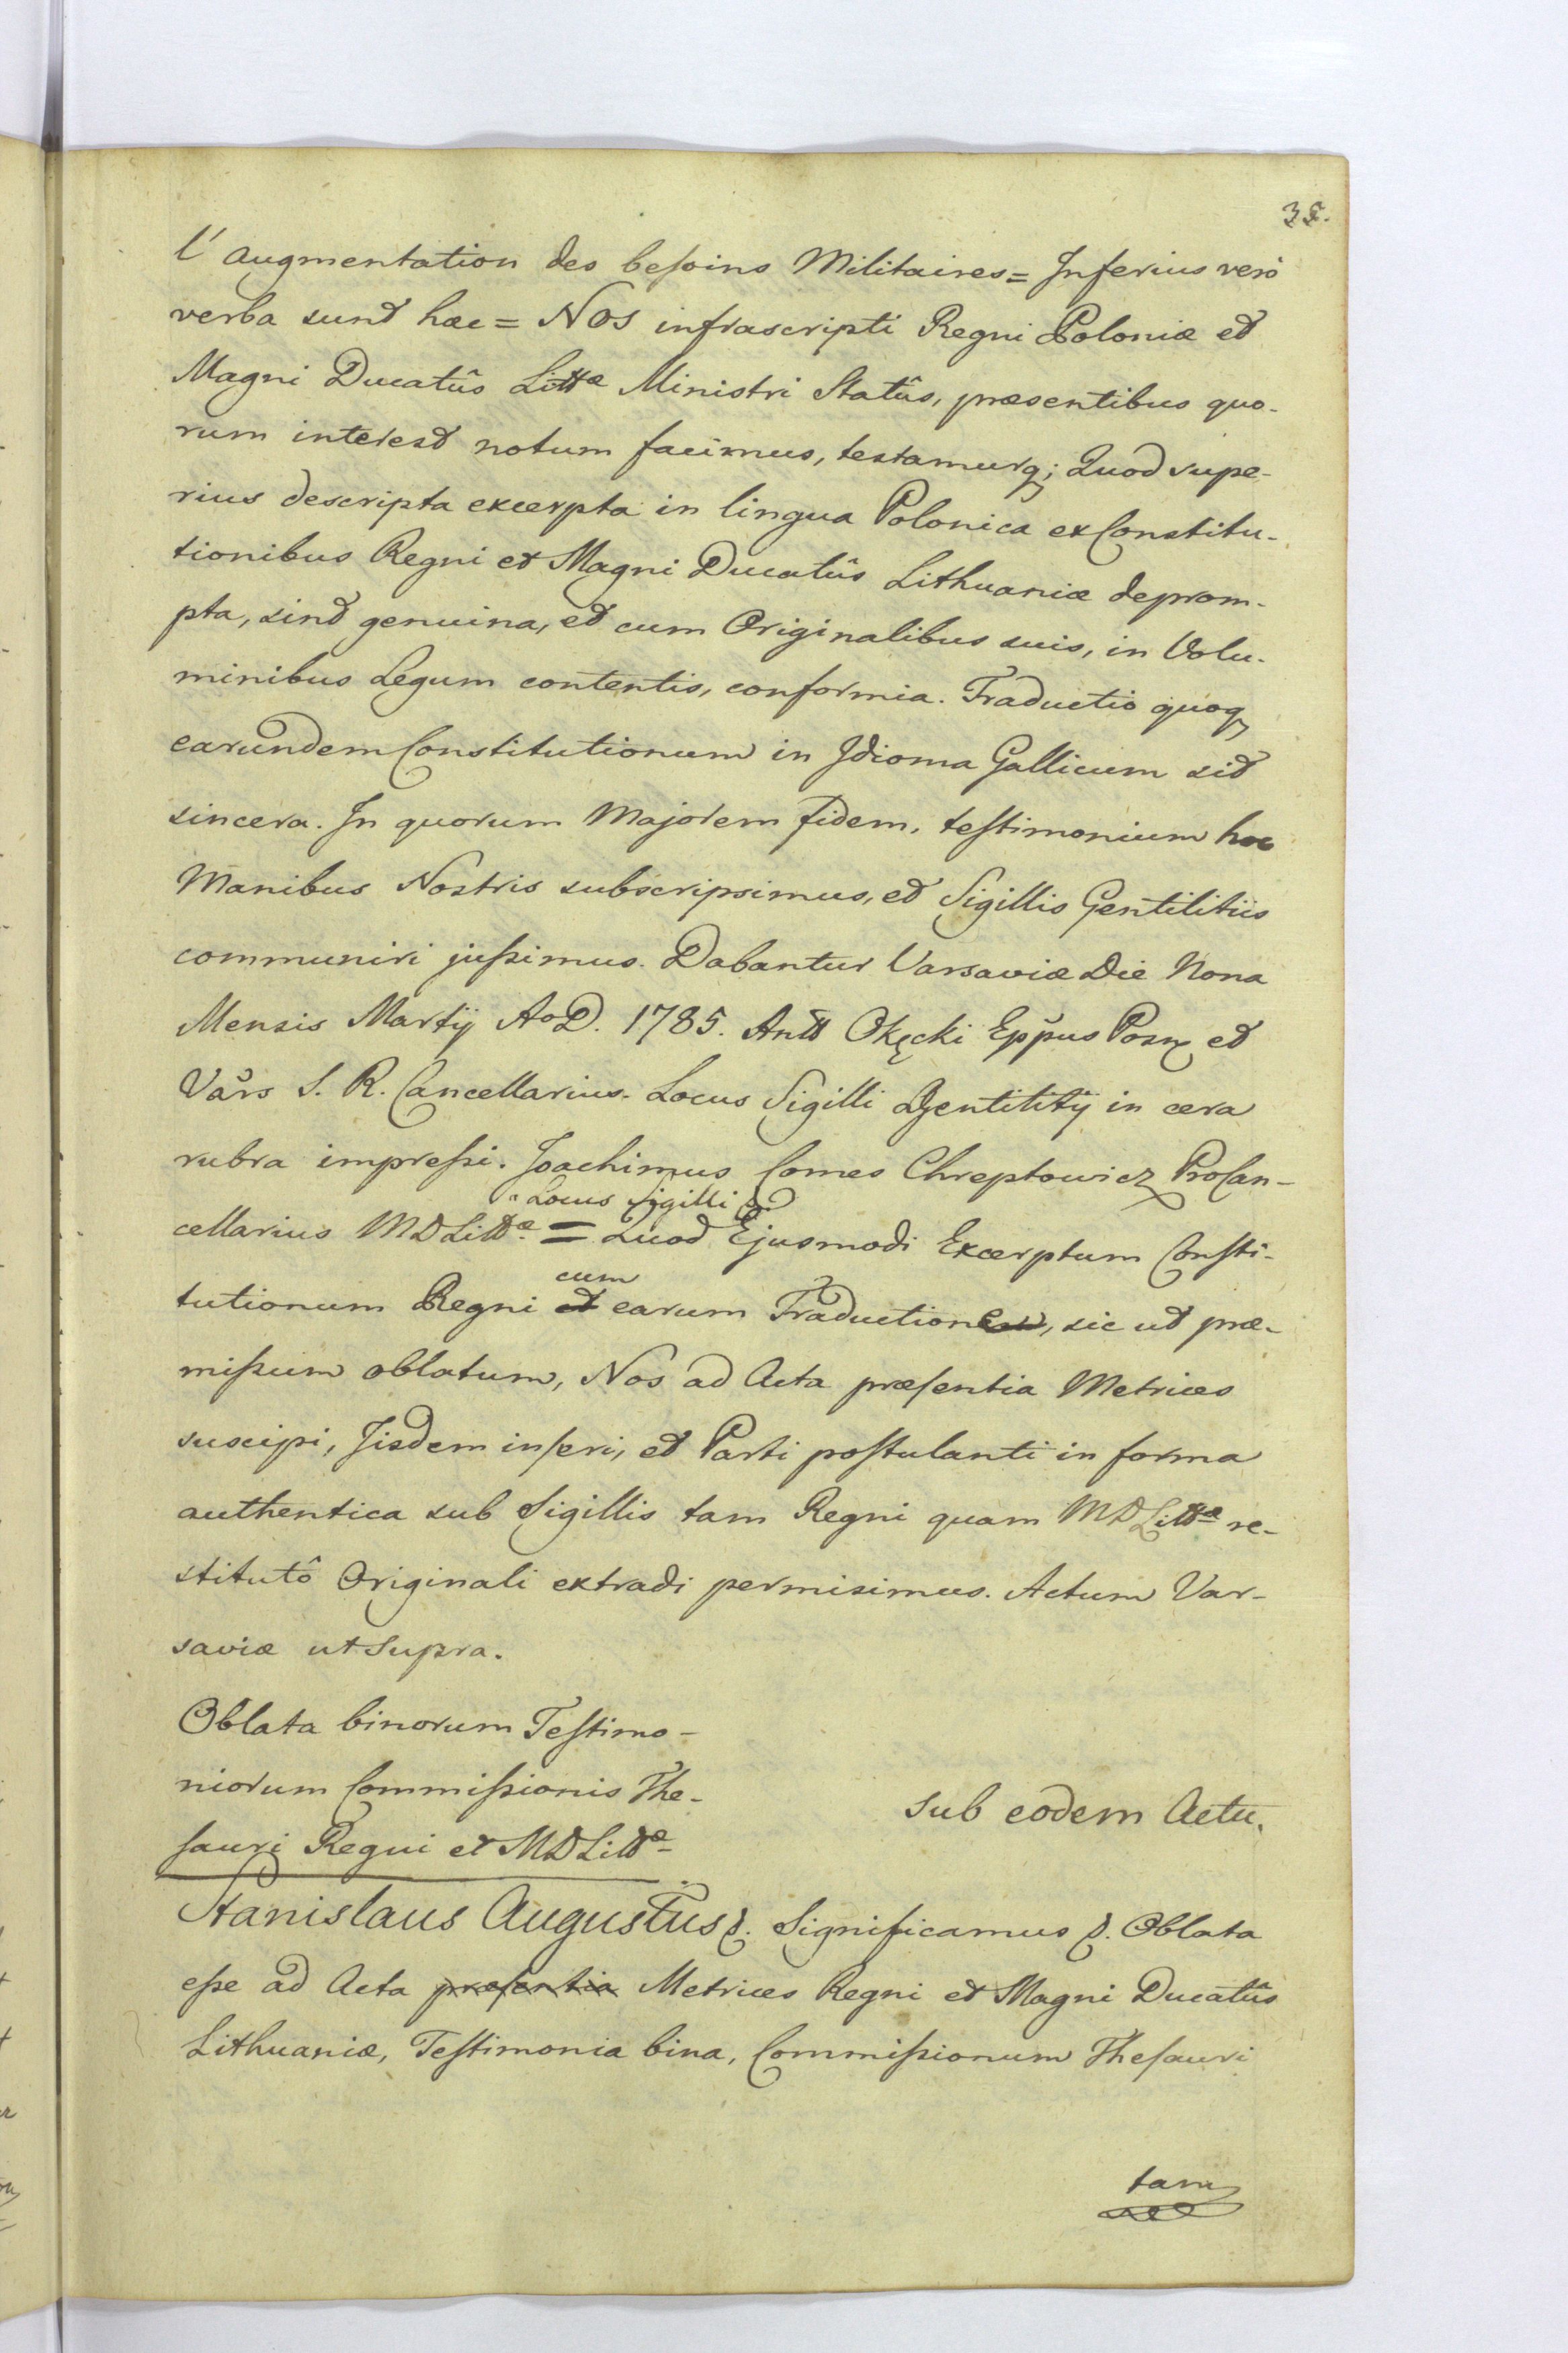 35.
l'augmentation des besoins Militaires = Inferius verò
verba sunt hæc = NOS infrascripti Regni Poloniæ et
Magni Ducatûs Littæ Ministri Statûs, præsentibus quo-
rum interest notum facimus, testamurq; Quod supe-
rius descripta excerpta in lingua Polonica ex Constitu-
tionibus Regni et Magni Ducatûs Lithuaniæ deprom-
pta, sint genuina, et cum Originalibus suis, in Volu-
minibus Legum contentis, conformia. Traductio quoq
earundem Constitutionum in Idioma Gallicum sit
sincera. In quorum Majorem fidem, testimonium hoc
Manibus Nostris subscripsimus, et Sigillis Gentilitiis
communiri jussimus. Dabantur Varsaviæ Die Nona
Mensis Martij AoD. 1785. Antt Okęcki Eppus Posn et
Vars S. R. Cancellarius. Locus Sigilli Gentilitij in cera
rubra impressi. Joachimus Comes Chreptowicz ProCan-
Locus Sigilli
cellarius MDLittæ = Quod Ejusmodi Excerptum Consti-
cum
tutionum Regni et earum Traductionem, sic ut præ-
missum oblatum, Nos ad Acta præsentia Metrices
suscipi, Iisdem inseri, et Parti postulanti in forma
authentica sub Sigillis tam Regni quam MDLittæ re-
stitutô Originali extradi permisimus. Actum Var-
saviæ ut Supra.
Oblata binorum Testimo-
niorum Commissionis The-
sauri Regni et MDLittæ
Sub eodem Actu.
Stanislaus Augustus &. Significamus &. Oblata
esse ad Acta præsentia Metrices Regni et Magni Ducatûs
Lithuaniæ, Testimonia bina, Commissionum Thesauri
tam